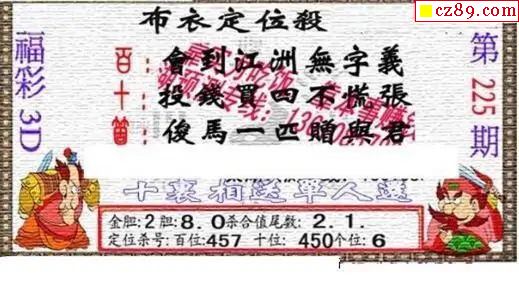 cz89.com
布衣定位殺
福彩3D
第225期
百：會到江洲無字義
十：投錢買四不慌張
箇：俊馬一匹贈與君
金胆:2胆:8.0杀合值尾数:2.1.
定位杀号:百位:457 十位:450个位:6